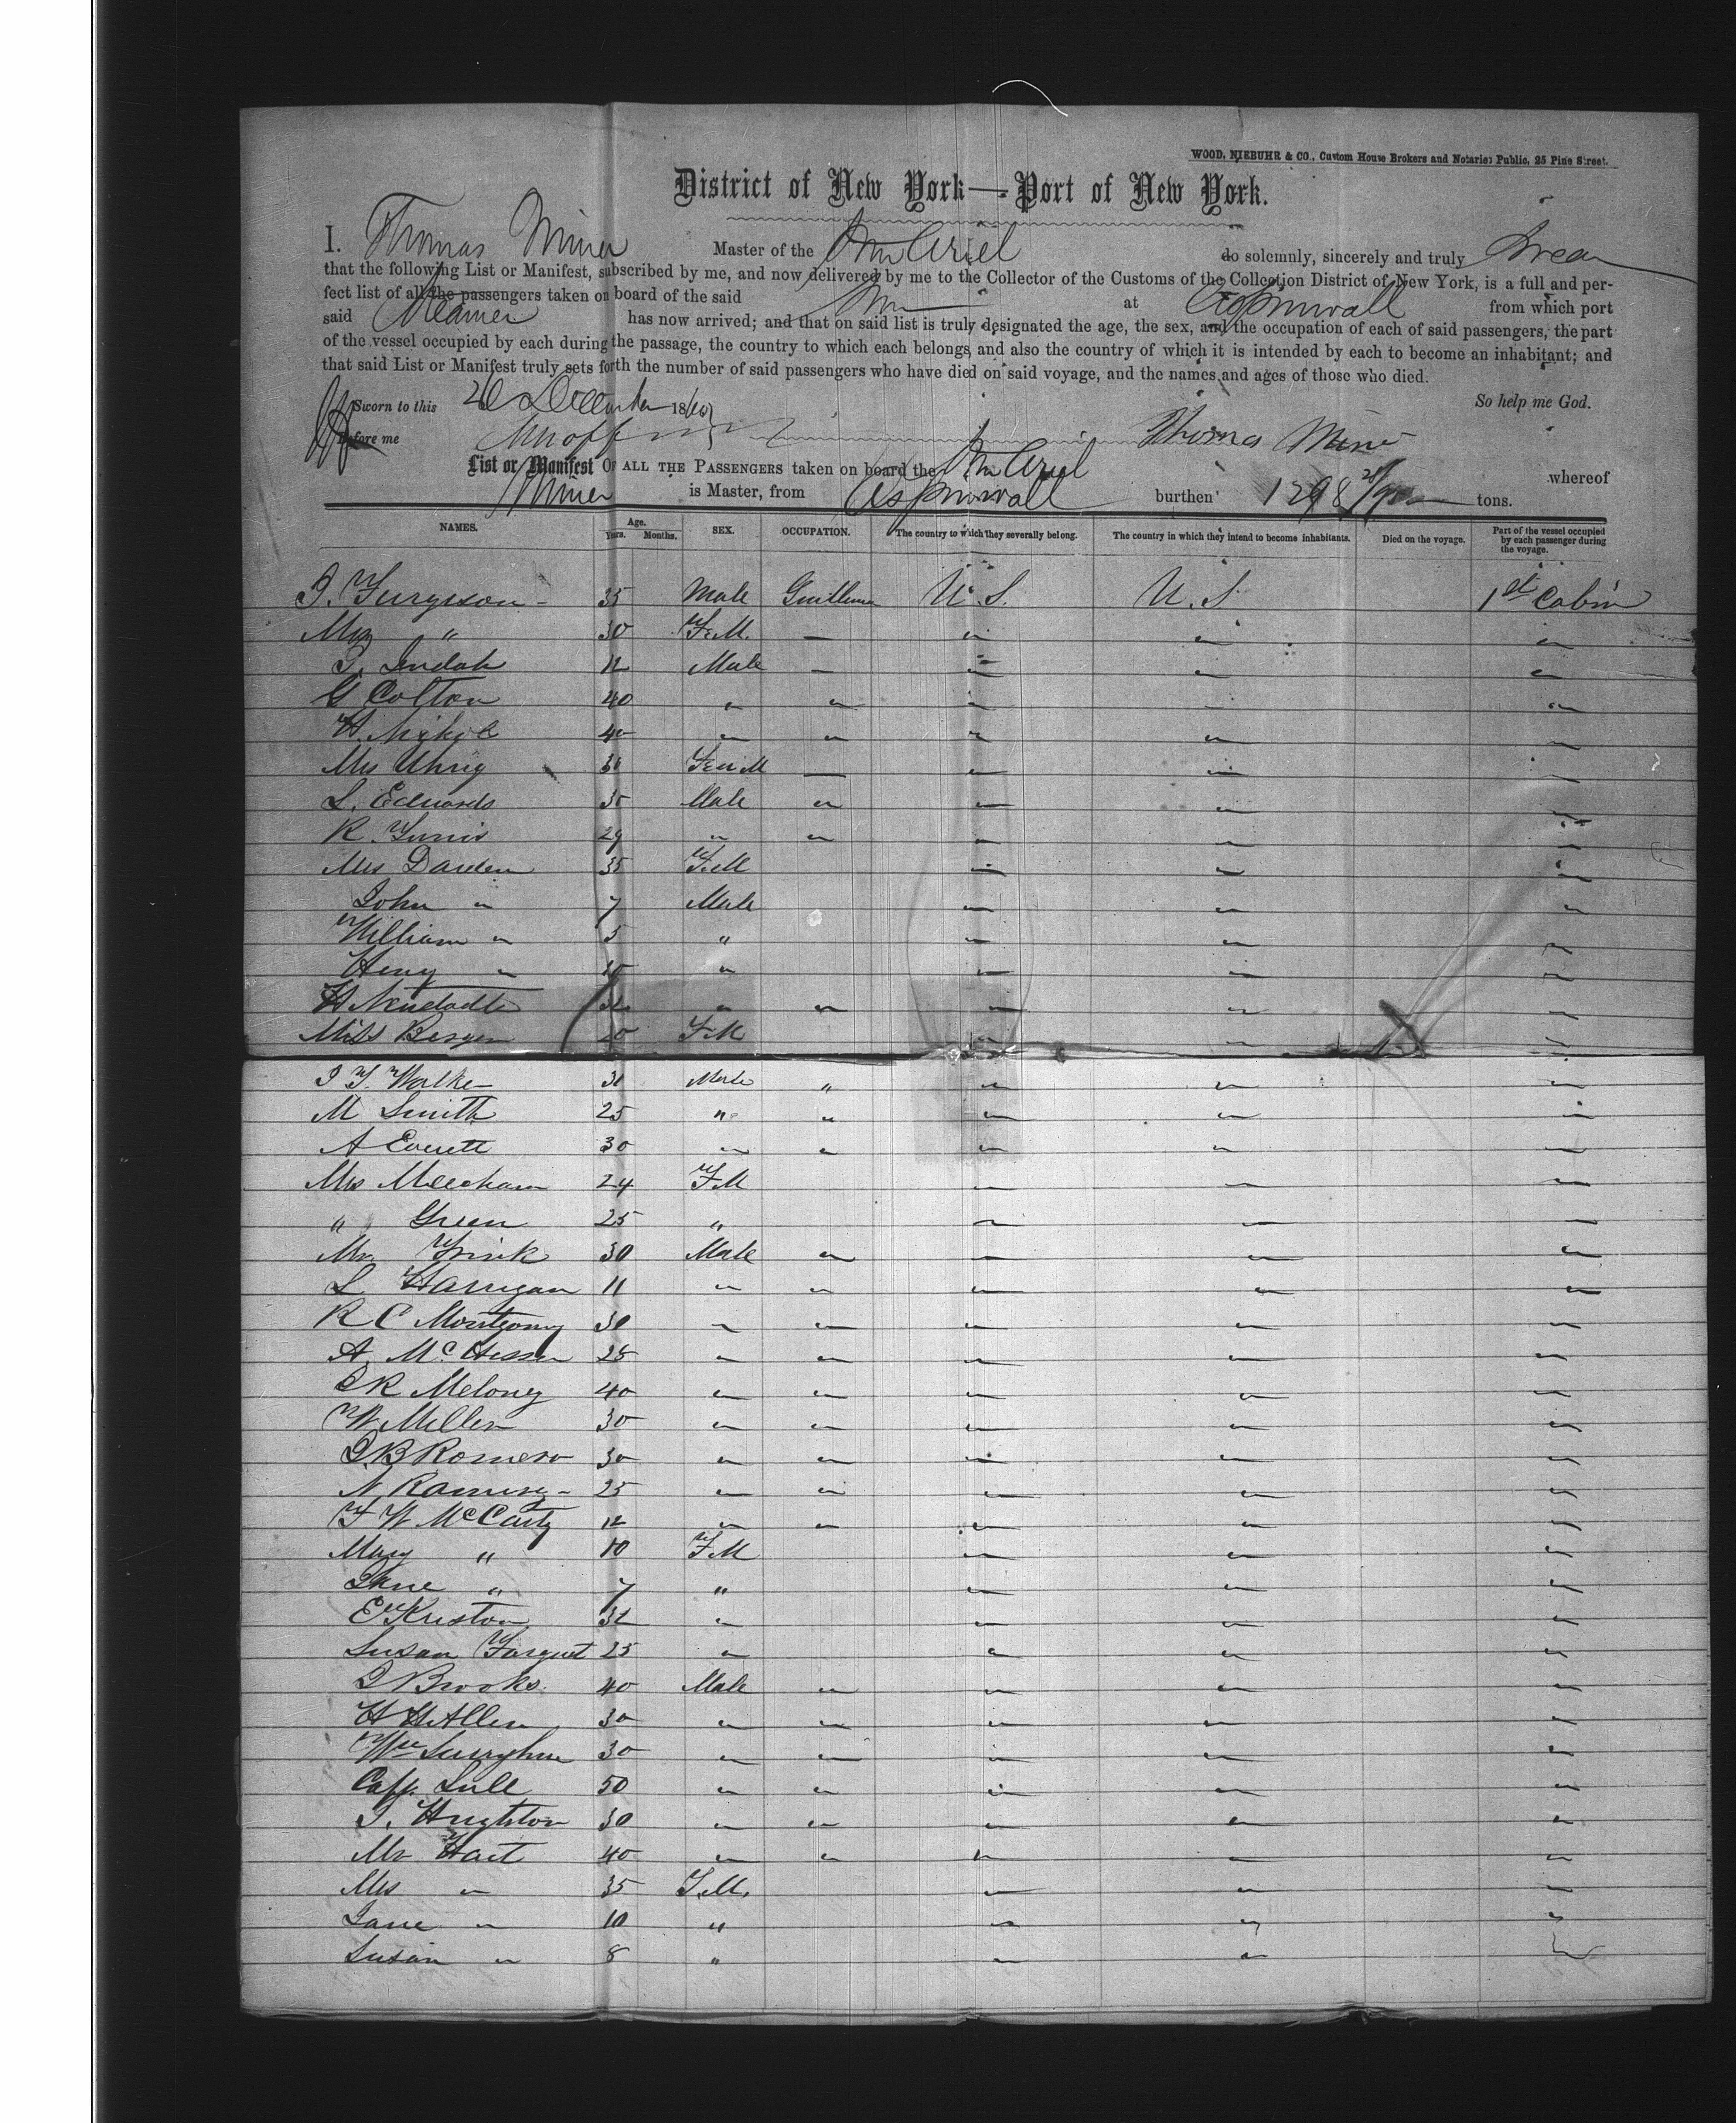 WOOD, NIEBUHR & CO., Custom House Brokers and Notaries Public, 25 Pine Street.
District of New York—Port of New York.
I. Thomas Miner Master of the Stm Ariel do solemnly, sincerely and truly Swear
that the following List or Manifest, subscribed by me, and now delivered by me to the Collector of the Customs of the Collection District of New York, is a full and per-
fect list of all the passengers taken on board of the said Stm at Aspinwall from which port
said Steamer has now arrived; and that on said list is truly designated the age, the sex, and the occupation of each of said passengers, the part
of the vessel occupied by each during the passage, the country to which each belongs, and also the country of which it is intended by each to become an inhabitant; and
that said List or Manifest truly sets forth the number of said passengers who have died on said voyage, and the names and ages of those who died.
Sworn to this 26 December 186 So help me God.
Before me Thomas Miner
List or Manifest OF ALL THE PASSENGERS taken on board the Stm Ariel whereof
Miner is Master, from Aspinwall burthen 1298 tons.
NAMES. Age. Yrs. Months. SEX. OCCUPATION. The country to which they severally belong. The country in which they intend to become inhabitants. Died on the voyage. Part of the vessel occupied by each passenger during the voyage.
J. Furguson - 35 Male Gentleman U.S. U.S. 1st Cabin
Mrs " 30 F.M. — " " "
12 Male — " " "
G Colton 40 " " " "
H. 40 " " " " "
Mrs Uhrig 30 Fem — " " "
L. Edwards 35 Male " " " "
R. 29 " " " " "
Mrs Darden 35 F.M " " "
John " 7 Male " " "
William " 5 " " " "
Henry " " " " "
H Neustadte " " " " "
Miss Bergen 20 F.M " " "
J F. Walker 30 Male " " " "
M Smith 25 " " " " "
A Everett 30 " " " " "
Mrs Meecham 24 F.M " " "
" Green 25 " " " "
Mr. Frink 30 Male " " " "
L Harrigan 11 " " " " "
R C Montgomy 30 " " " " "
A. McHesser 28 " " " " "
J R Melony 40 " " " " "
W Miller 30 " " " " "
J. B Romero 30 " " " " "
N Ramirez - 25 " " " " "
F W McCarty 12 " " " " "
Mary " 10 F.M " " "
Jane " 7 " " " "
E Kriston 32 " " " "
Susan Farquet 25 " " " "
J Brooks. 40 Male " " " "
H H Allen 30 " " " " "
Wm 30 " " " " "
Capt. Lull 50 " " " " "
J. Hughston 30 " " " " "
Mr Hart 40 " " " " "
Mrs " 35 F.M. " " "
Jane " 10 " " " "
Susan " 8 " " " "